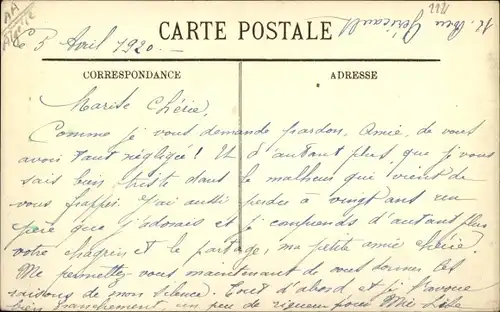 CARTE POSTALE
Le 5 Avril 1920.
CORRESPONDANCE
ADRESSE
Marise Chérie,
Comme je vous demande pardon, Amie, de vous
avoir tant négligée! Et d'autant plus que je vous
sais bien triste dans le malheur qui vient de
vous frapper. J'ai aussi perdu à vingt ans un
père que j'adorais et je comprends d'autant plus
votre chagrin et le partage, ma petite amie chérie
Me permettez-vous maintenant de vous donner les
raisons de mon silence. Tout d'abord et je l'avoue
bien franchement, un peu de rigueur pour